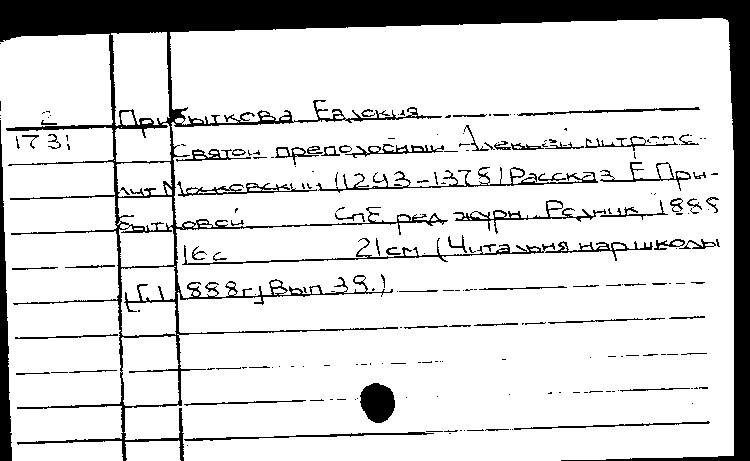 2
1731
Прибыткова Евдокия
Святой преподобный Алексий митропо-
лит Московский (1293-1378) Рассказ Е. При-
бытковой. Спб. ред. журн. Родник, 1888
16 с 21 см. (Читальня нар. школы
[Г. I, 1888 г.] Вып. 38.).